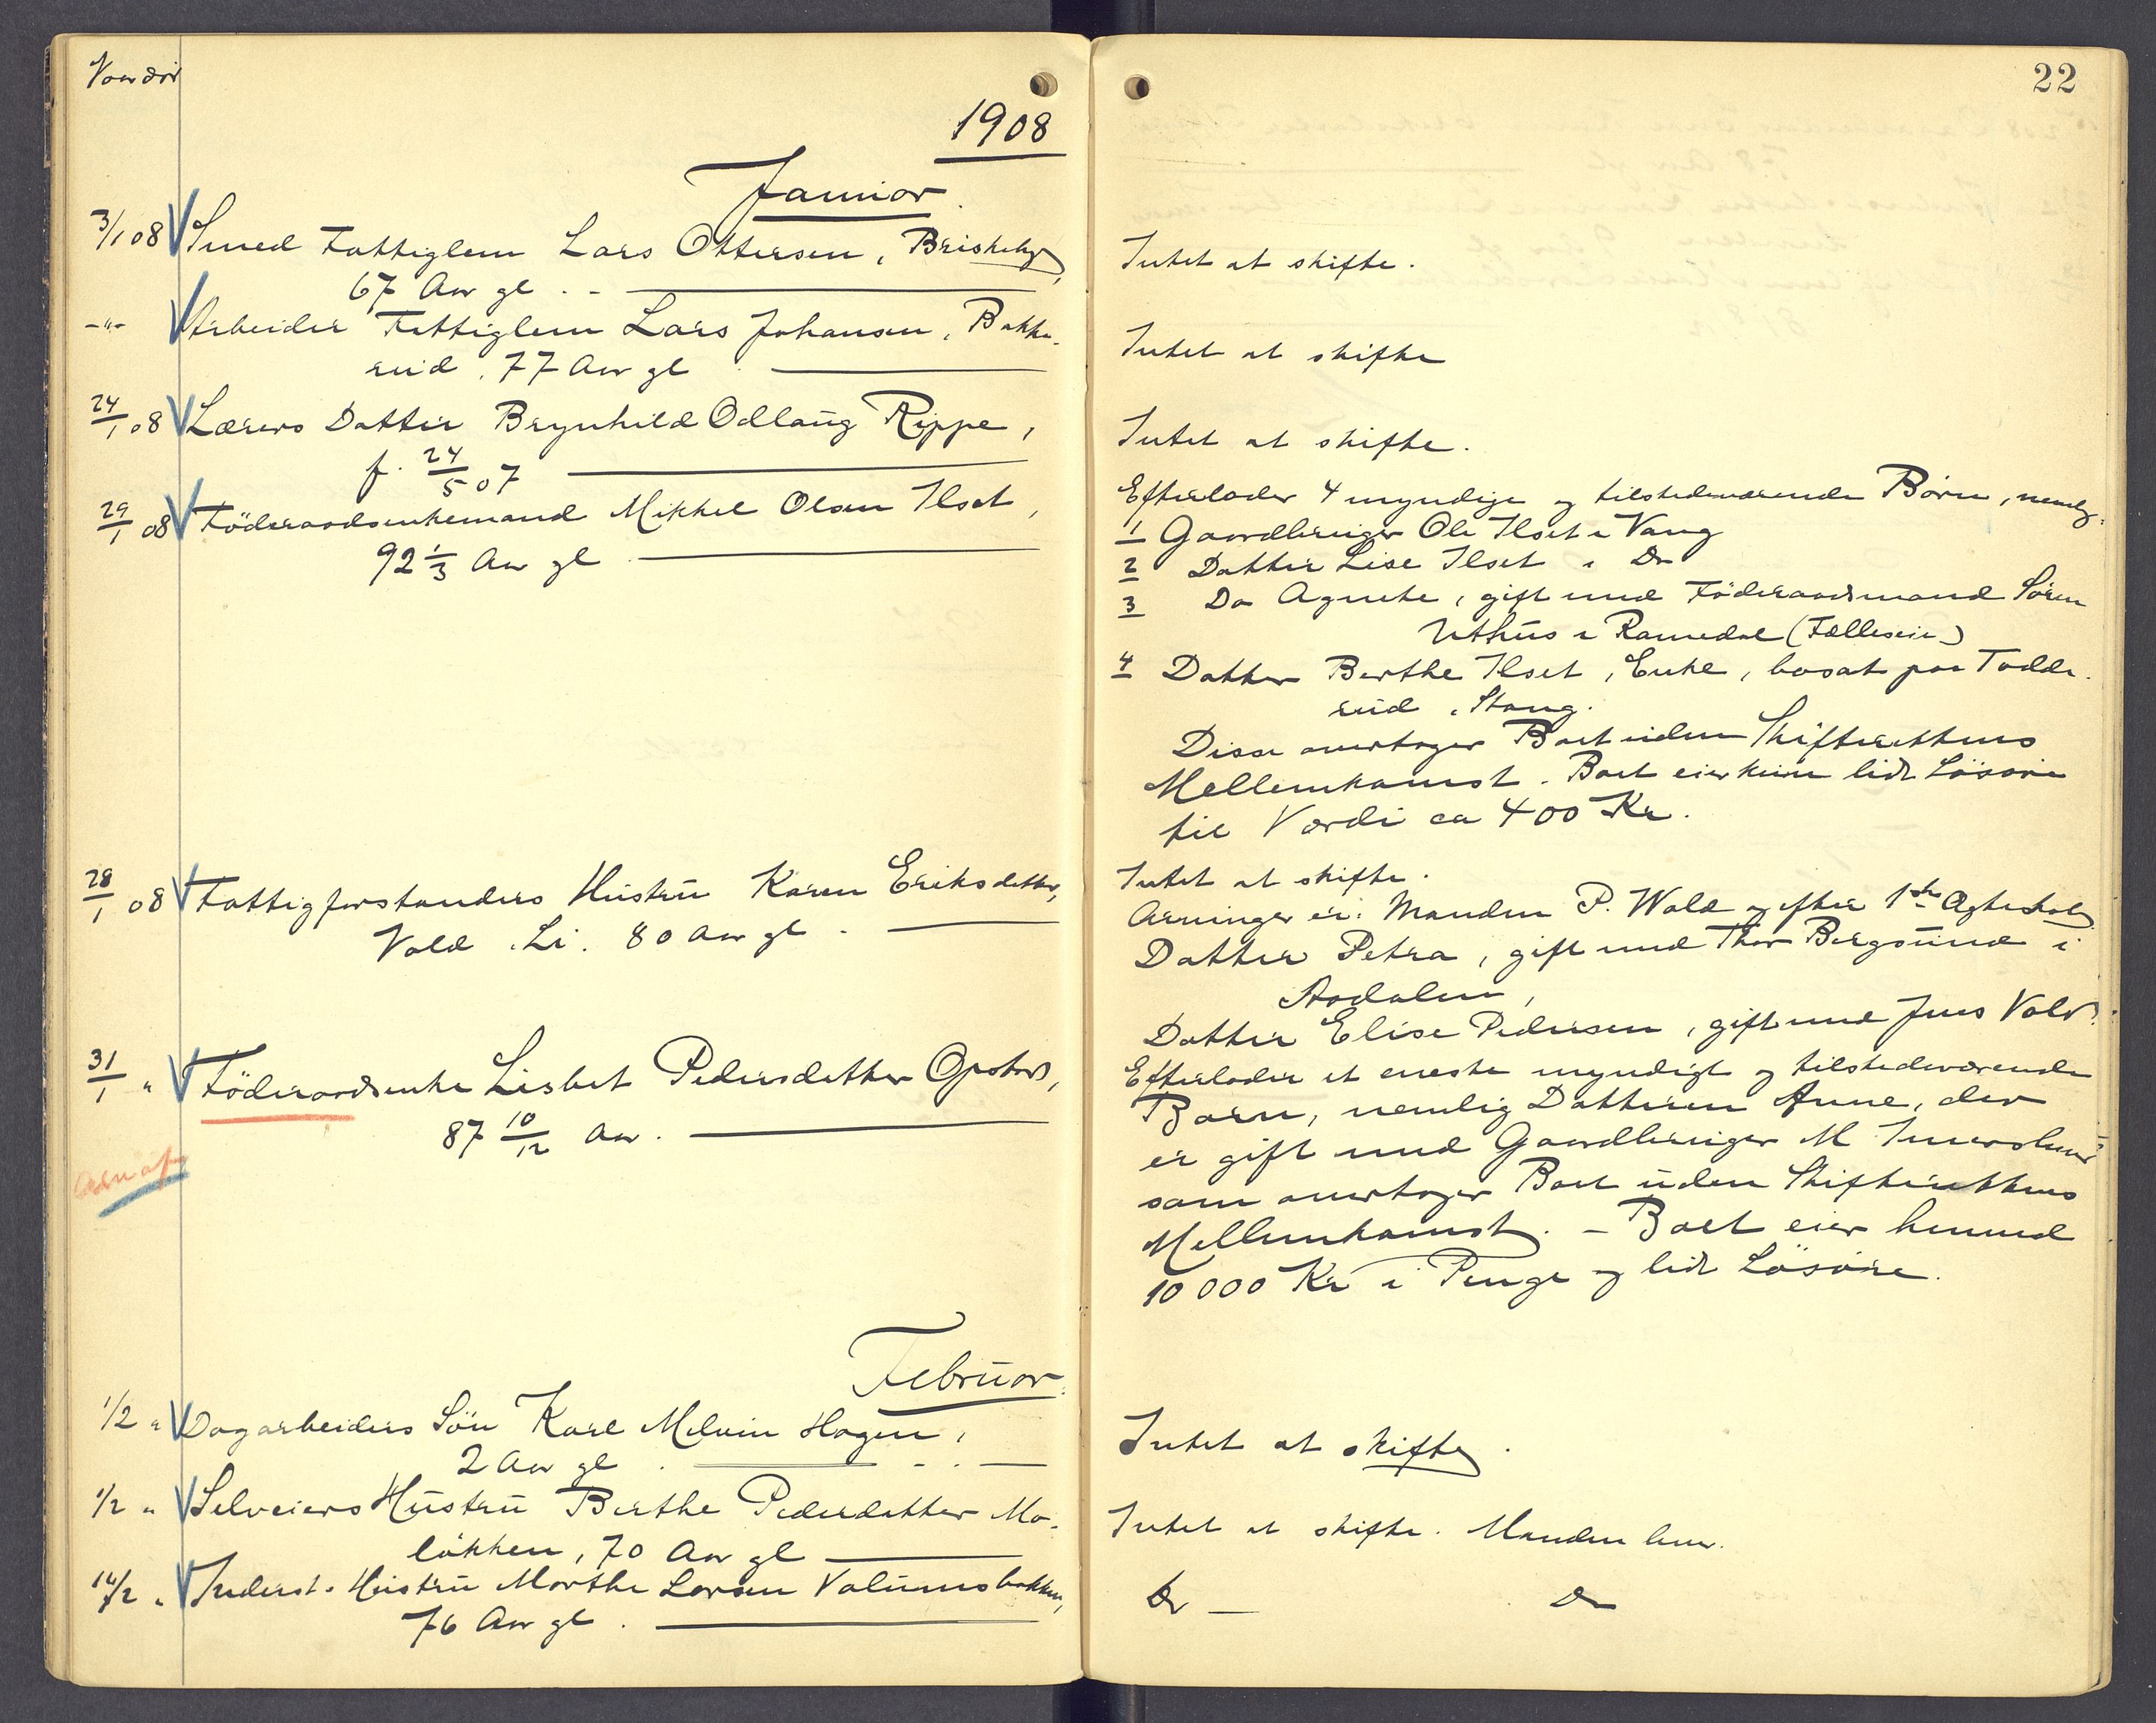 22
1908
Januar.
3/1 08 Smed Fattiglem Lars Ottersen, Briskeby,
67 Aar gl. -
-"- Arbeider Fattiglem Lars Johansen, Bakke-
rud, 77 Aar gl
24/1 08 Lærers Datter Brynhild Odlaug Rippe,
f. 24/5 07
29/1 08 Föderaadsenkemand Mikkel Olsen Ilset,
92 1/3 Aar gl
28/1 08 Fattigforstanders Hustru Karen Eriksdatter,
Vold, Li. 80 Aar gl.
31/1 " Föderaadsenke Lisbet Pedersdatter Opstad,
87 10/12 Aar.
Februar.
1/2 " Dagarbeiders Sön Karl Melvin Hagen,
2 Aar gl.
1/2 " Selveiers Hustru Berthe Pedersdatter Mo-
løkken, 70 Aar gl
/2 " Inderst. Hustru Marthe Larsen Valumsbakken,
76 Aar gl.
Intet at skifte.
Intet at skifte
Intet at skifte.
Efterlader 4 myndige og tilstedeværende Börn, nemlig:
1 Gaardbruger Ole Ilset i Vang
2 Datter Lise Ilset i Do
3 Do Agnethe, gift med Föderaadsmand Sören
Uthus i Romedal (Fælleseie)
4 Datter Berthe Ilset, Enke, bosat paa Todde-
rud, Stang.
Disse overtager Boet uden Skifterettens
Mellemkomst. Boet eier kun lidt Lösöre
til Værdi ca 400 Kr.
Intet at skifte.
Arvinger er: Manden P. Wold og efter 1ste Ægteskab
Datter Petra, gift med Thor Bergsund i
Aadalen,
Datter Elise Pedersen, gift med Jens Vold.
Efterlader et eneste myndigt og tilstedeværende
Barn, nemlig Datteren Anne, der
er gift med Gaardbruger M
som overtager Boet uden Skifterettens
Mellemkomst. - Boet eier henved
10 000 Kr i Penge og lidt Lösöre.
Intet at skifte.
Intet at skifte. Manden lever.
Do - Do